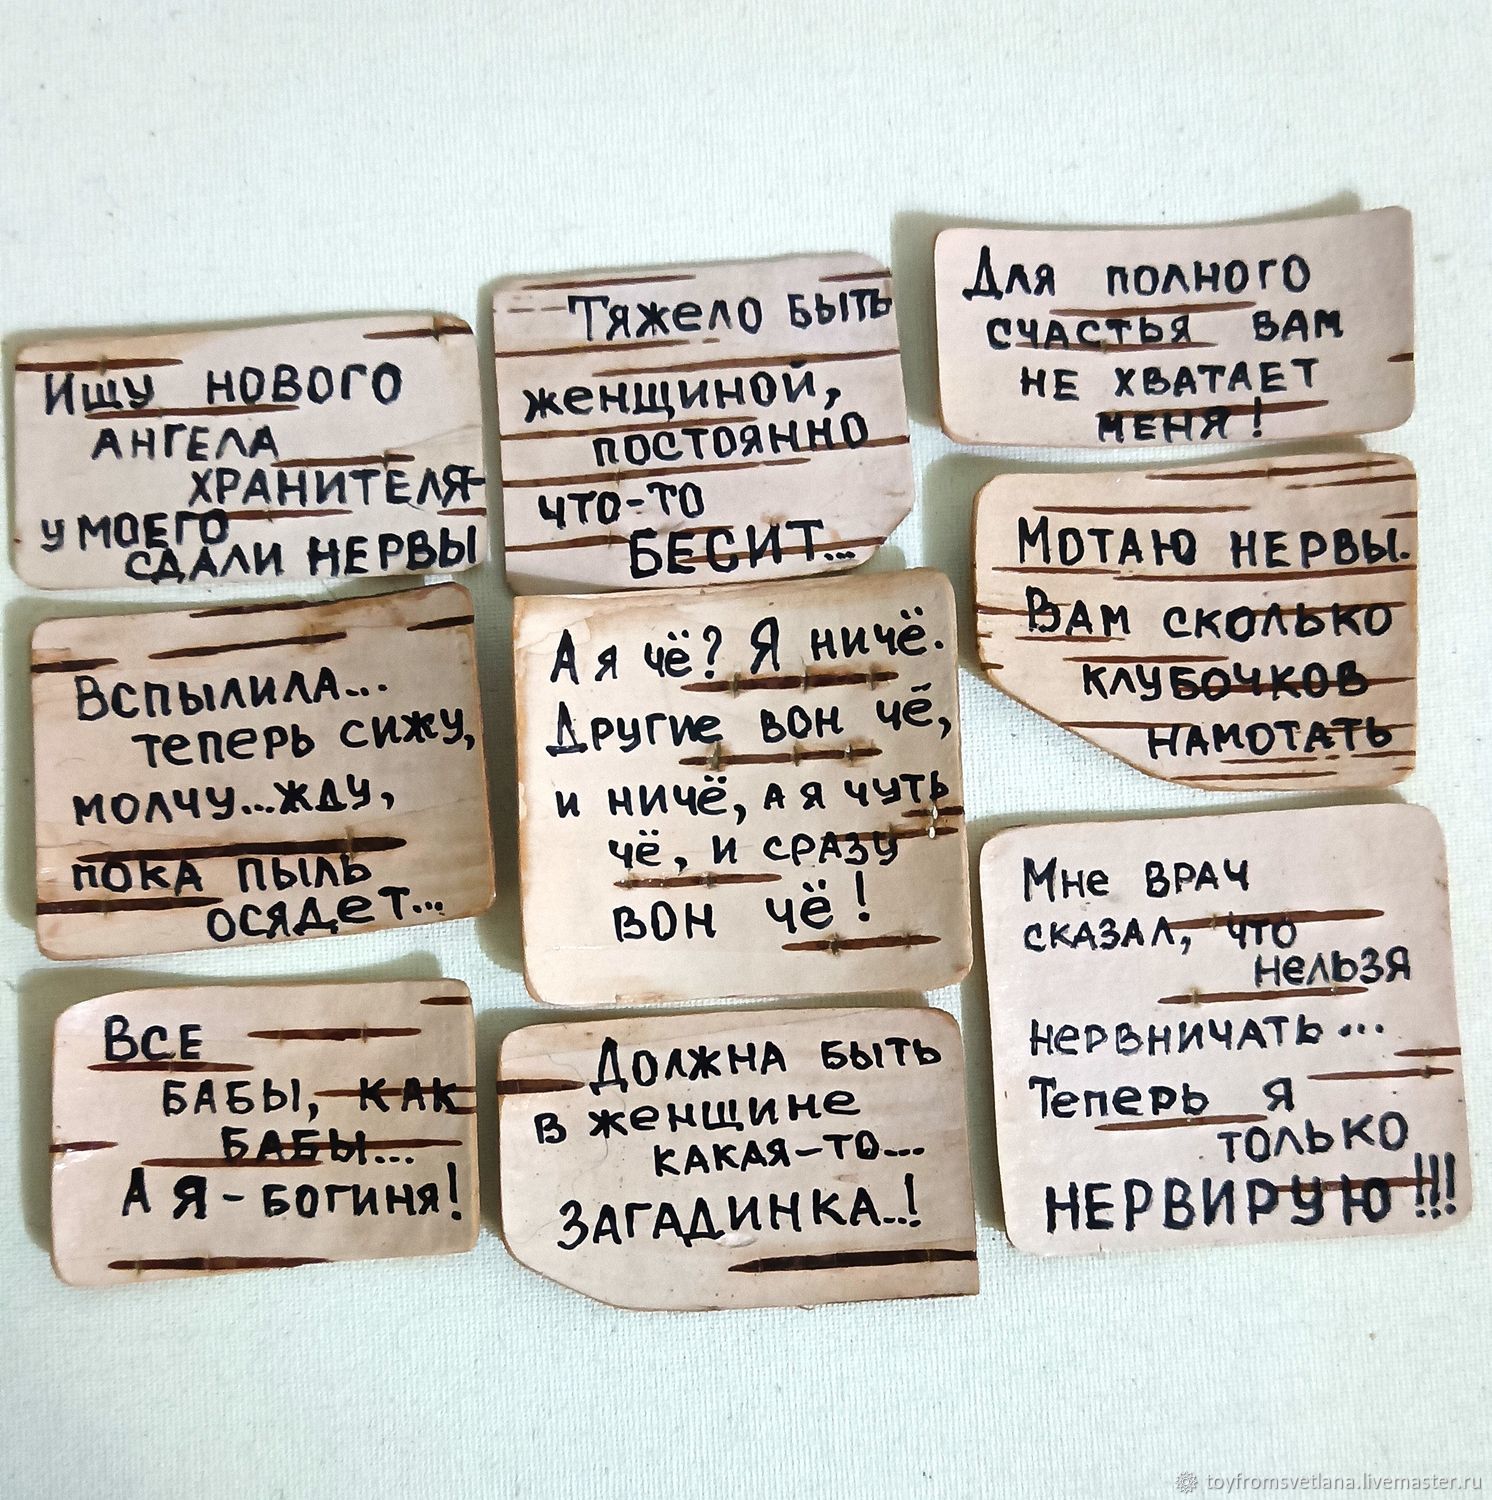 Ищу нового
ангела
хранителя-
у моего
сдали нервы
Тяжело быть
женщиной,
постоянно
что-то
БЕСИТ...
Для полного
счастья вам
не хватает
меня!
Вспылила...
теперь сижу,
молчу...жду,
пока пыль
осядет...
А я чё? Я ничё.
Другие вон чё,
и ничё, а я чуть
чё, и сразу
вон чё!
Мотаю нервы.
Вам сколько
клубочков
намотать
Все
бабы, как
бабы...
А Я - богиня!
Должна быть
в женщине
какая-то...
ЗАГАДИНКА..!
Мне врач
сказал, что
нельзя
нервничать...
Теперь я
только
НЕРВИРУЮ!!!
toyfromsvetlana.livemaster.ru